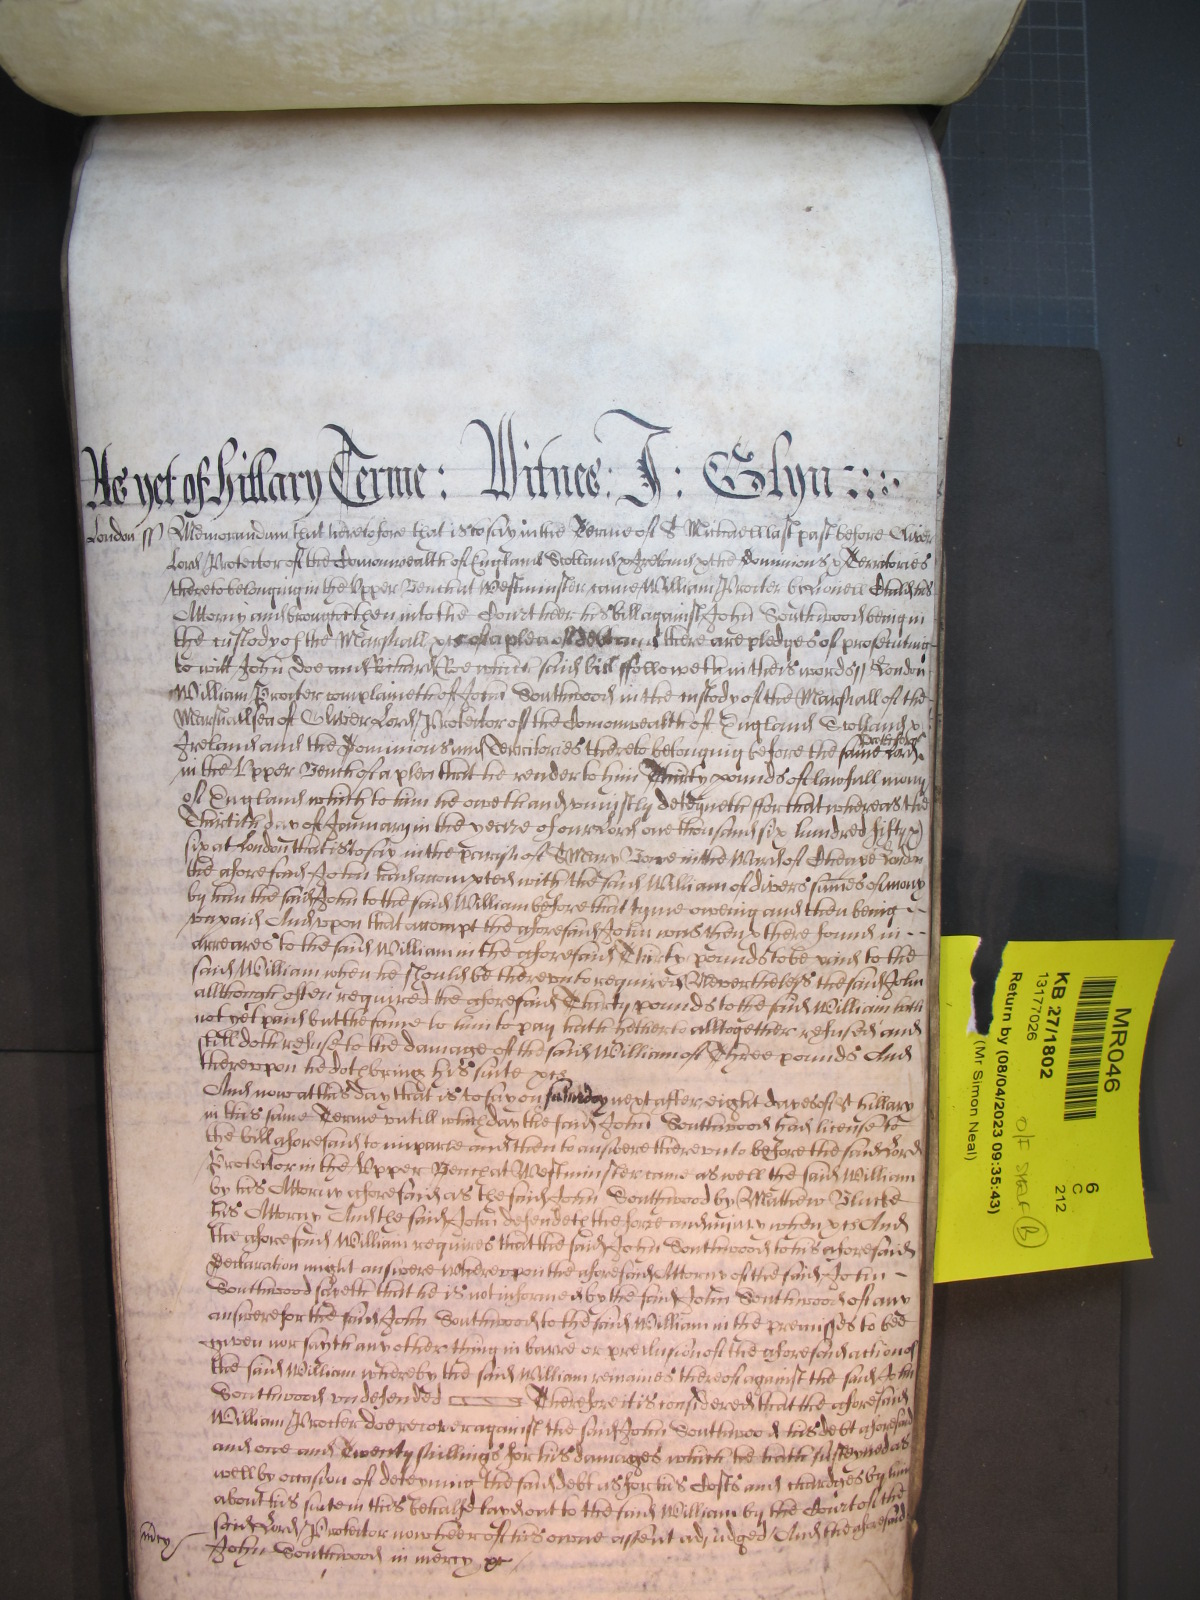 As yet of Hillary Terme : Witnes : J : Glyn
London ss Memorandum that heretofore that is to say in the Terme of St Michaell last past before Oliver
Lord Protector of the Comonwealth of England Scotland & Ireland & the dominions & Territories
thereto belonging in the Upper Bench at Westminster came William Procter by Lionell his
Attorny and brought then into the Court heer his bill against John Southwood being in
the custody of the Marshall &c of a plea of debt and there are pledges of prosecuting
to witt John Doe and Richard Roe which said bill followeth in theis words ss London
William Procter complaineth of John Southwood in the custody of the Marshall of the
Marshallsea of Oliver Lord Protector of the Comonwealth of England Scotland &
Ireland and the Dominions and Territories thereto belonging before the same Lord Protector
in the Upper Bench of a plea that he render to him Thirty pounds of lawfull mony
of England which to him he oweth and uniustly deteyneth for that whereas the
Thirtith day of January in the yeare of our Lord one thousand six hundred fifty &
six at London that is to say in the parish of St Mary Bowe in the Ward of Cheape London
the aforesaid John had accompted with the said William of divers sumes of mony
by him the said John to the said William before that tyme oweing and then being
unpaid And upon that accompt the aforesaid John was then & there found in
arreares to the said William in the aforesaid Thirty pounds to be paid to the
said William when he should be thereunto required Nevertheless the said John
allthough often required the aforesaid Thirty pounds to the said William hath
not yet paid but the same to him to pay hath hetherto alltogether refused and
still doth refuse to the damage of the said William of Three pounds And
thereupon he doth bring his suite &c
And now at this day that is to say on Saturday next after eight dayes of St Hillary
in this same Terme untill which day the said John Southwood had license to
the bill aforesaid to imparle and then to answere thereunto before the said Lord
Protector in the Upper Bench at Westminster came as well the said William
by his Attorny aforesaid as the said John Southwood by Mathew
his Attorny And the said John defendeth the force and iniury when &c And
the aforesaid William requires that the said John Southwood to his aforesaid
Declaration might answere Whereupon the aforesaid Attorny of the said John
Southwood sayeth that he is not informed by the said John Southwood of any
answere for the said John Southwood to the said William in the premisses to bee
given nor sayth any other thing in barre or preclusion of the aforesaid action of
the said William whereby the said William remaines thereof against the said John
Southwood undefended Therefore it is considered that the aforesaid
William Procter doe recover against the said John Southwood his debt aforesaid
and one and Twenty shillings for his damages which he hath susteyned as
well by occasion of deteyning the said debt as for his Costs and chardges by him
about his suite in this behalfe layd out to the said William by the Court of the
said Lord Protector now heer of his owne assent adjudged And the aforesaid
mercy
John Southwood in mercy &c
MR046
6
C
212
KB 27/1802
13177026
Return by (08/04/2023 09:35:43)
(Mr. Simon Neal)
O/F SHELF B